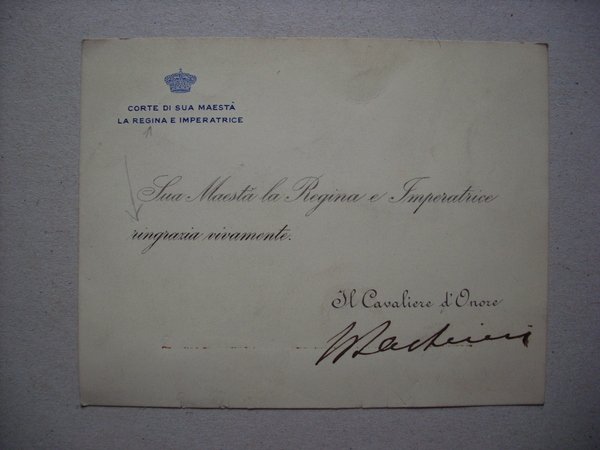 CORTE DI SUA MAESTÀ
LA REGINA E IMPERATRICE
Sua Maestà la Regina e Imperatrice
ringrazia vivamente.
Il Cavaliere d'Onore